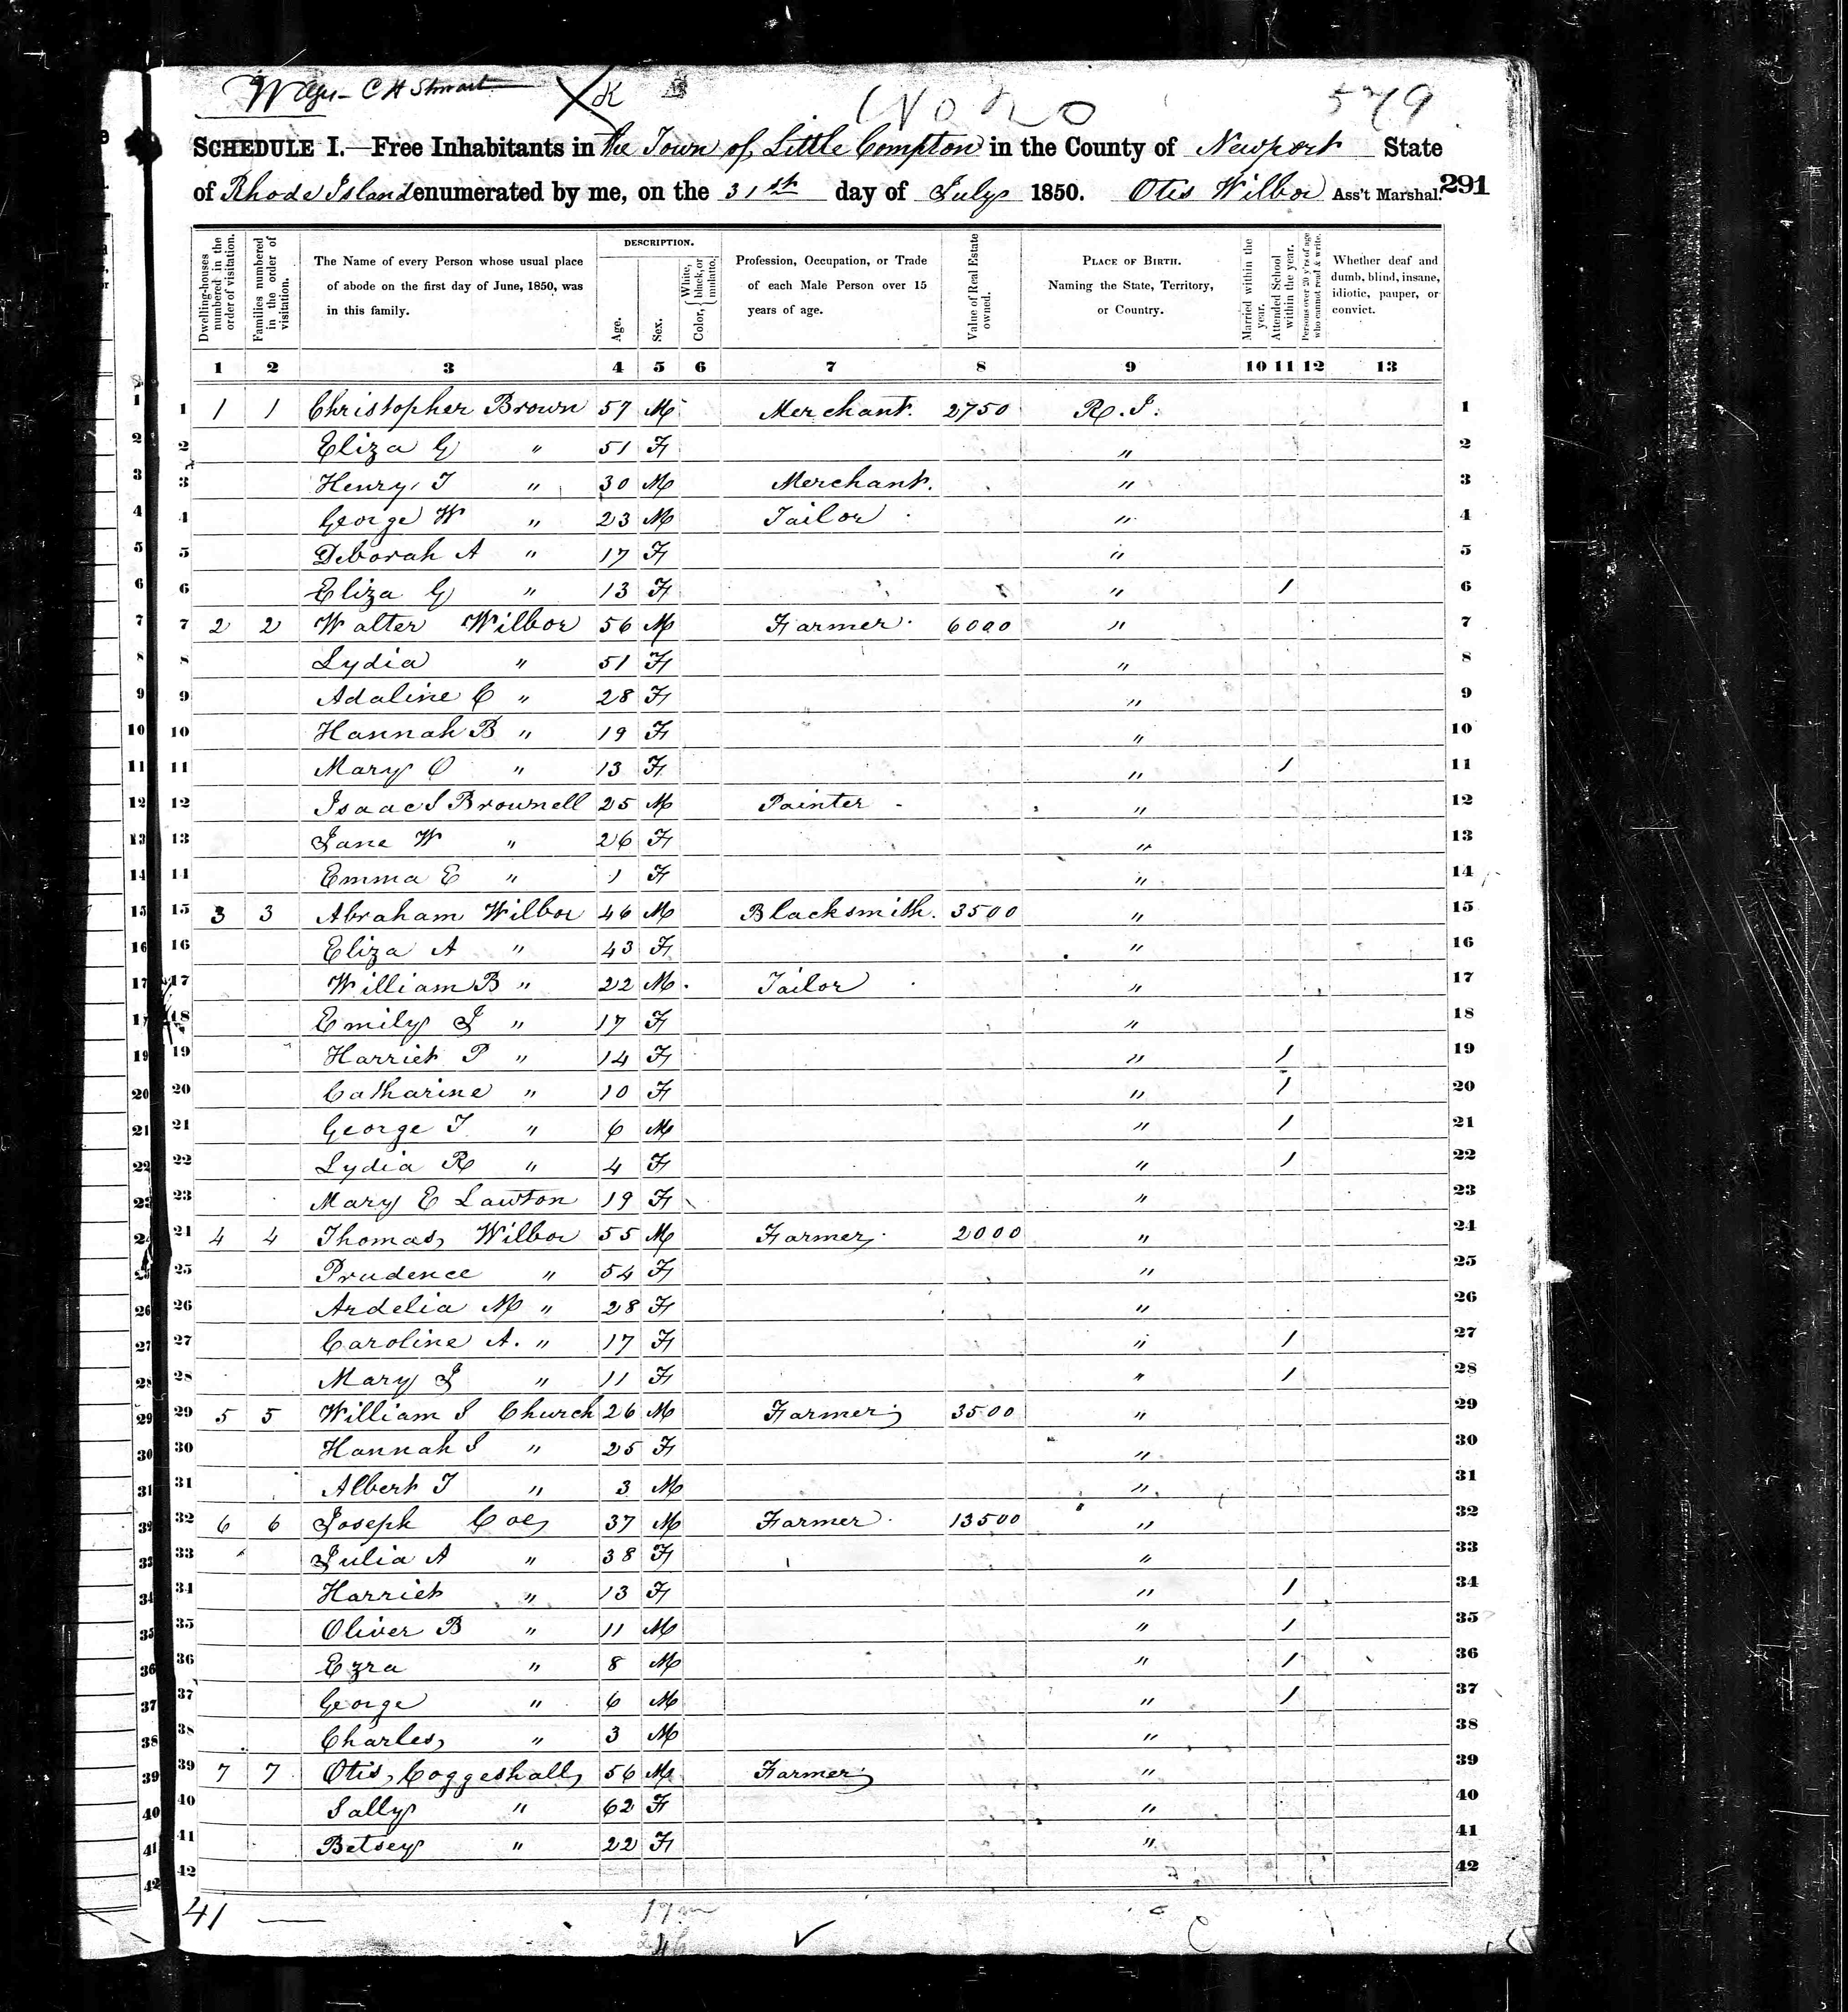 C H Stewart K 579
SCHEDULE I.—Free Inhabitants in the Town of Little Compton in the County of Newport State
of Rhode Island enumerated by me, on the 31st day of July 1850. Otis Wilbor Ass't Marshal. 291
Dwelling-houses numbered in the order of visitation. Families numbered in the order of visitation. The Name of every Person whose usual place of abode on the first day of June, 1850, was in this family. DESCRIPTION. Age. Sex. Color, { White, black, or mulatto. Profession, Occupation, or Trade of each Male Person over 15 years of age. Value of Real Estate owned. PLACE OF BIRTH. Naming the State, Territory, or Country. Married within the year. Attended School within the year. Persons over 20 y'rs of age who cannot read & write. Whether deaf and dumb, blind, insane, idiotic, pauper, or convict.
1 2 3 4 5 6 7 8 9 10 11 12 13
1 1 1 Christopher Brown 57 M Merchant. 2750 R.I. 1
2 Eliza G " 51 F " 2
3 Henry T " 30 M Merchant. " 3
4 George W " 23 M Tailor " 4
5 Deborah A " 17 F " 5
6 Eliza G " 13 F " 1 6
7 2 2 Walter Wilbor 56 M Farmer 6000 " 7
8 Lydia " 51 F " 8
9 Adaline C " 28 F " 9
10 Hannah B " 19 F " 10
11 Mary O " 13 F " 1 11
12 Isaac S Brownell 25 M Painter " 12
13 Jane W " 26 F " 13
14 Emma E " 1 F " 14
15 3 3 Abraham Wilbor 46 M Blacksmith. 3500 " 15
16 Eliza A " 43 F " 16
17 William B " 22 M Tailor " 17
18 Emily J " 17 F " 18
19 Harriet P " 14 F " 1 19
20 Catharine " 10 F " 1 20
21 George T " 6 M " 1 21
22 Lydia R " 4 F " 1 22
23 Mary E Lawton 19 F " 23
24 4 4 Thomas Wilbor 55 M Farmer 2000 " 24
25 Prudence " 54 F " 25
26 Ardelia M " 28 F " 26
27 Caroline A. " 17 F " 1 27
28 Mary J " 11 F " 1 28
29 5 5 William S Church 26 M Farmer 3500 " 29
30 Hannah S " 25 F " 30
31 Albert T " 3 M " 31
32 6 6 Joseph Coe 37 M Farmer 13500 " 32
33 Julia A " 38 F " 33
34 Harriet " 13 F " 1 34
35 Oliver B " 11 M " 1 35
36 Ezra " 8 M " 1 36
37 George " 6 M " 1 37
38 Charles " 3 M " 38
39 7 7 Otis Coggeshall 56 M Farmer " 39
40 Sally " 62 F " 40
41 Betsey " 22 F " 41
42 42
41 17 m